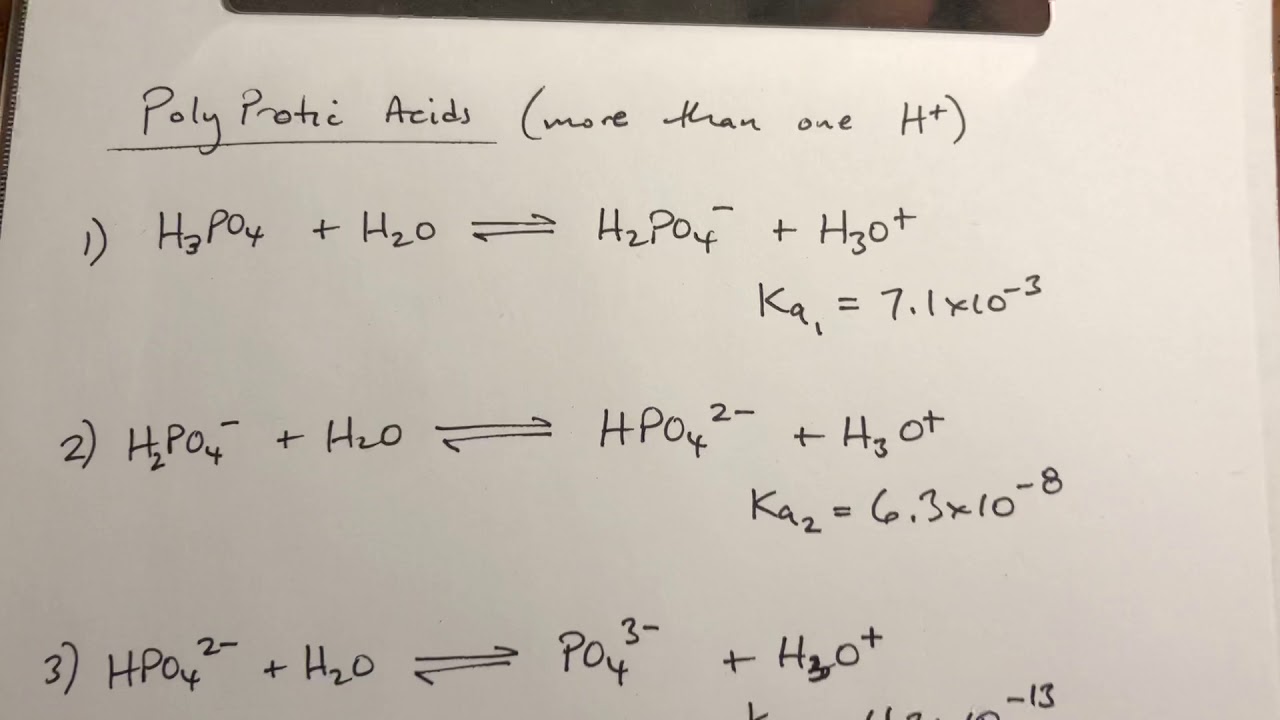 Poly Protic Acids (more than one H⁺)
1) H₃PO₄ + H₂O ⇌ H₂PO₄⁻ + H₃O⁺
Ka₁ = 7.1×10⁻³
2) H₂PO₄⁻ + H₂O ⇌ HPO₄²⁻ + H₃O⁺
Ka₂ = 6.3×10⁻⁸
3) HPO₄²⁻ + H₂O ⇌ PO₄³⁻ + H₃O⁺
10⁻¹³